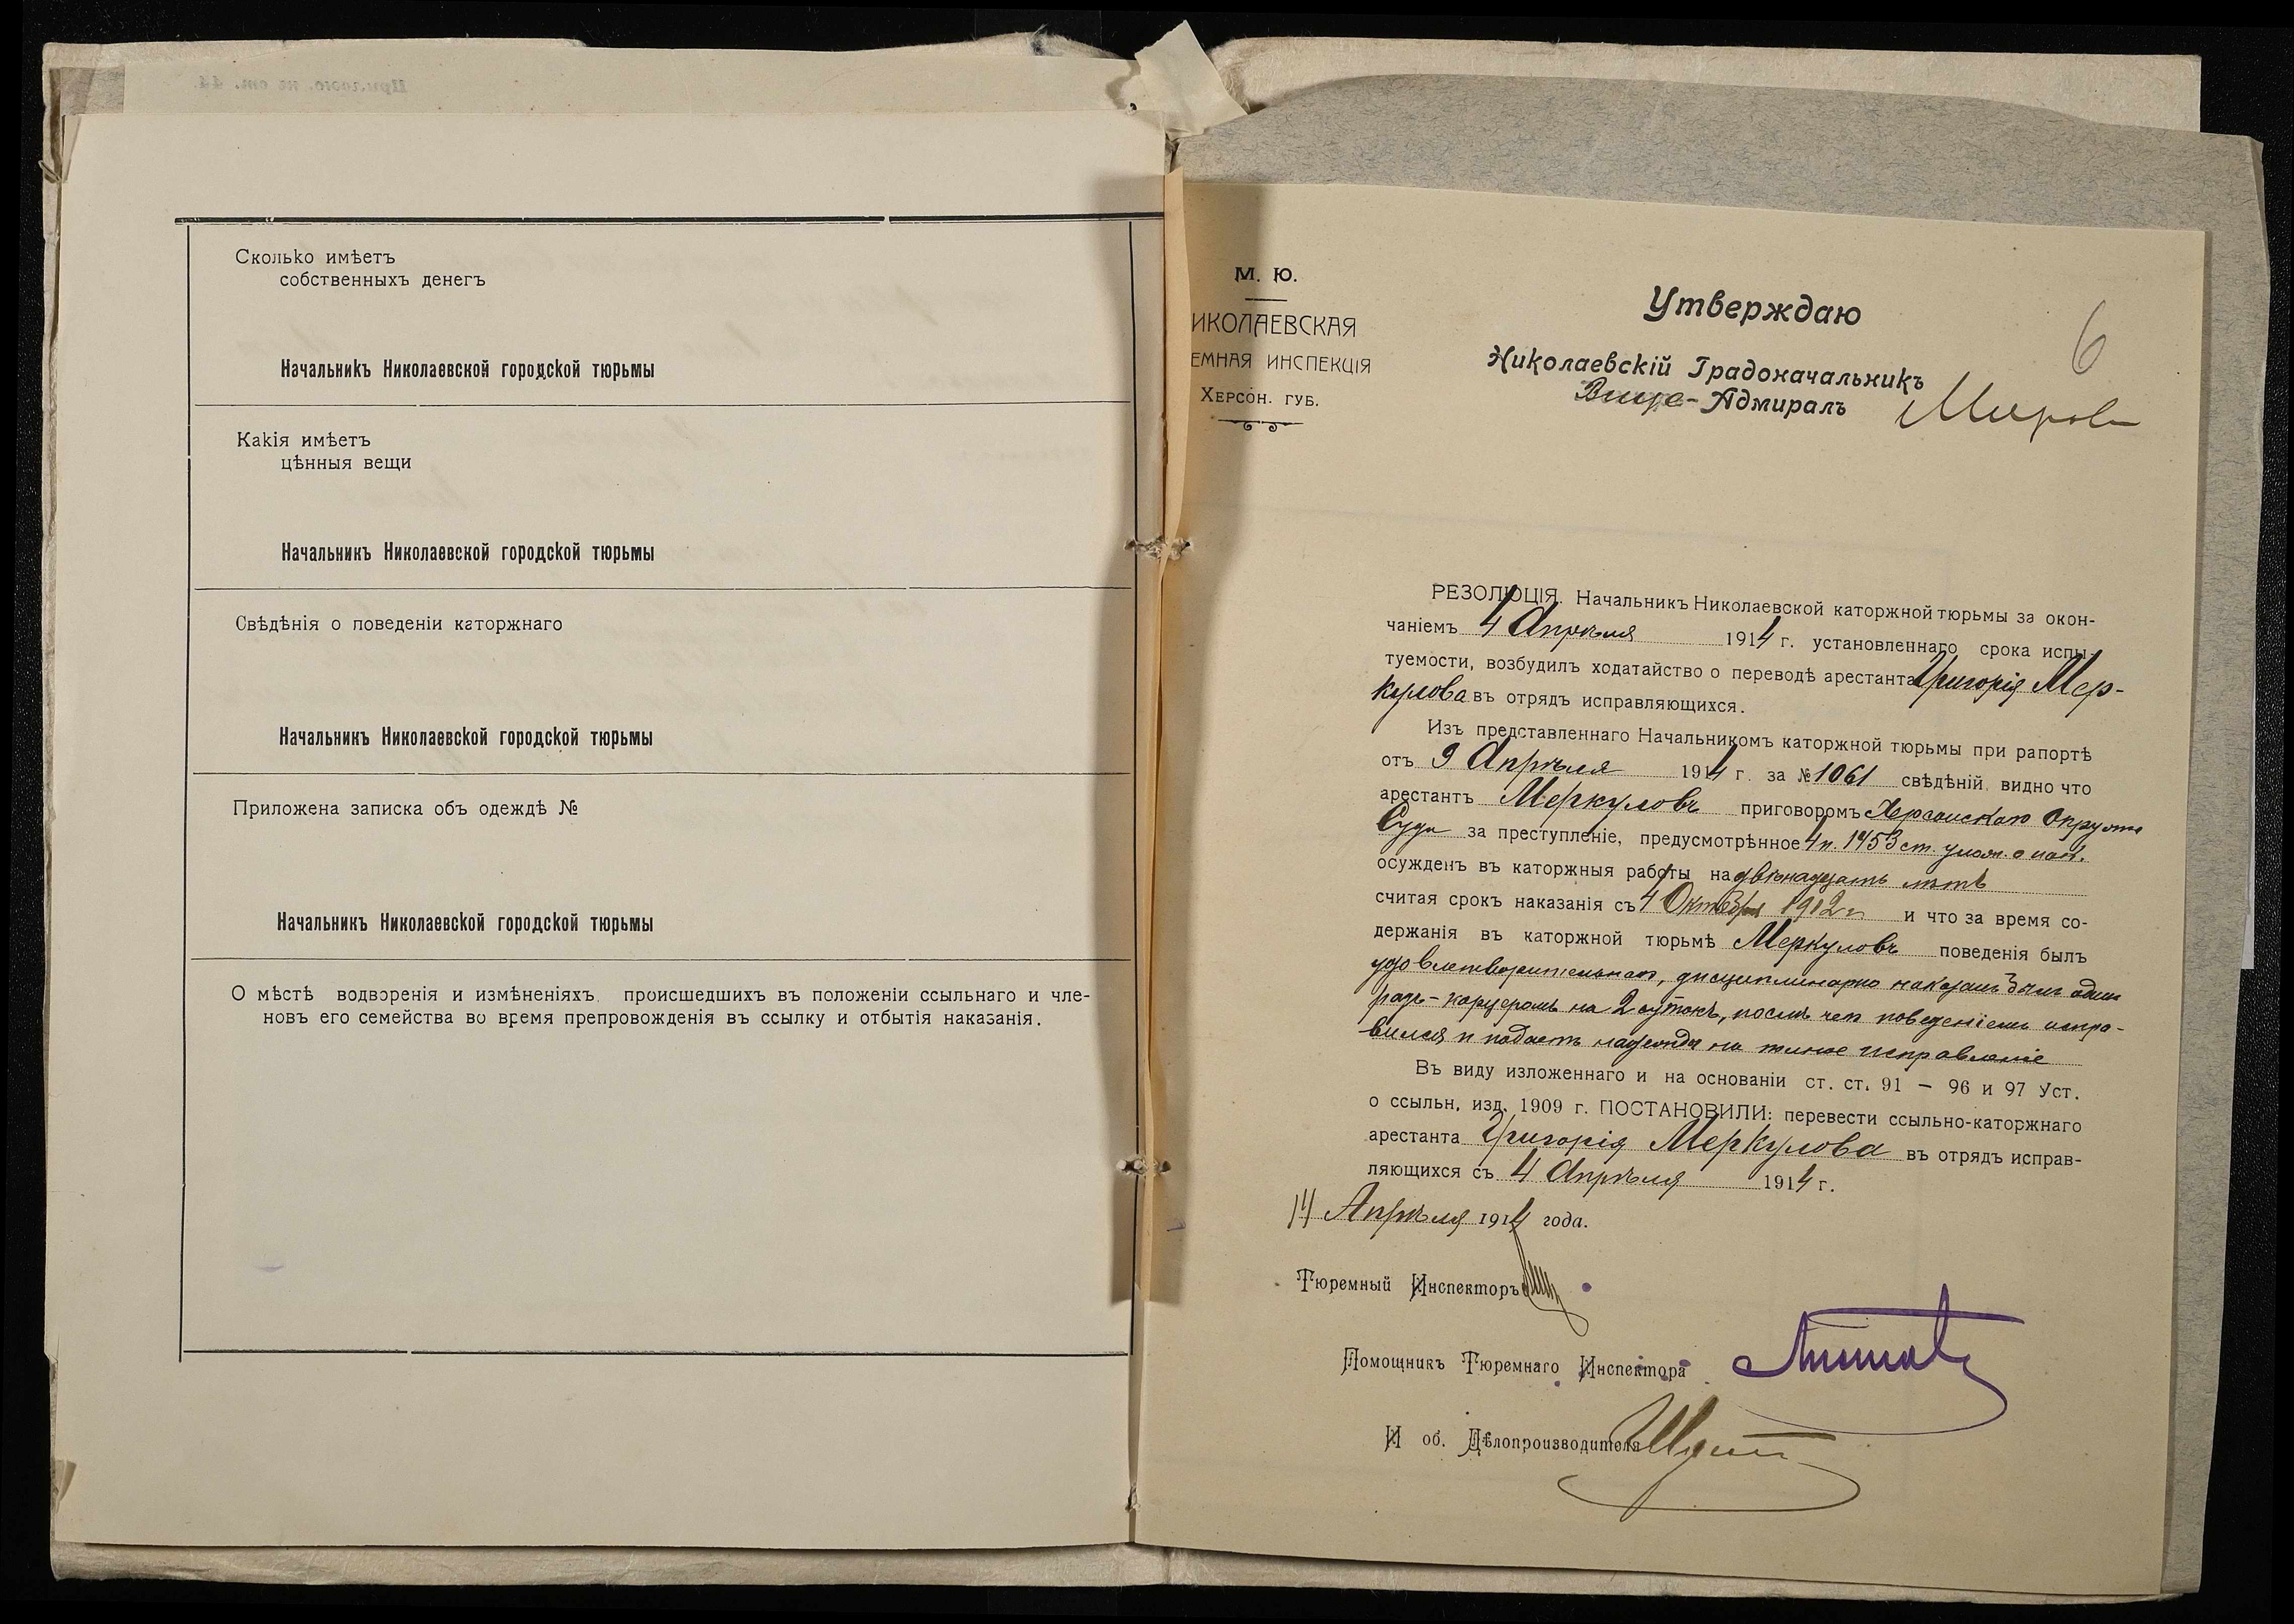 Сколько имѣетъ
собственныхъ денегъ
Начальникъ Николаевской городской тюрьмы
Какія имѣетъ
цѣнныя вещи
Начальникъ Николаевской городской тюрьмы
Свѣдѣнія о поведеніи каторжнаго
Начальникъ Николаевской городской тюрьмы
Приложена записка объ одеждѣ №
Начальникъ Николаевской городской тюрьмы
О мѣстѣ водворенія и измѣненіяхъ, происшедшихъ въ положеніи ссыльнаго и чле-
новъ его семейства во время препровожденія въ ссылку и отбытія наказанія.
М. Ю.
ИКОЛАЕВСКАЯ
ЕМНАЯ ИНСПЕКЦІЯ
ХЕРСОН. ГУБ.
6
Утверждаю
Николаевскій Градоначальникъ
Вице-Адмиралъ
РЕЗОЛЮЦІЯ. Начальникъ Николаевской каторжной тюрьмы за окон-
чаніемъ 4 Апрѣля 1914 г. установленнаго срока испы-
туемости, возбудилъ ходатайство о переводѣ арестанта Григорія Мер-
кулова въ отрядъ исправляющихся.
Изъ представленнаго Начальникомъ каторжной тюрьмы при рапортѣ
отъ 9 Апрѣля 1914 г. за № 1061 свѣдѣній, видно что
арестантъ Меркуловъ приговоромъ Херсонскаго Окружн
Суда за преступленіе, предусмотрѣнное 4 п. 1453 ст. улож. о нак.
осужденъ въ каторжныя работы на двѣнадцать лѣтъ
считая срокъ наказанія съ 4 Октября 1912 г и что за время со-
держанія въ каторжной тюрьмѣ Меркуловъ поведенія былъ
удовлетворительнаго, дисциплинарно наказанъ былъ одинъ
разъ - карцеромъ на 2 сутокъ, послѣ чего поведеніемъ испра-
вился и подаетъ надежды на полное исправленіе
Въ виду изложеннаго и на основаніи ст. ст. 91 — 96 и 97 Уст.
о ссыльн. изд. 1909 г. ПОСТАНОВИЛИ: перевести ссыльно-каторжнаго
арестанта Григорія Меркулова въ отрядъ исправ-
ляющихся съ 4 Апрѣля 1914 г.
14 Апрѣля 1914 года.
Тюремный Инспекторъ
Помощникъ Тюремнаго Инспектора
И об. Дѣлопроизводителя